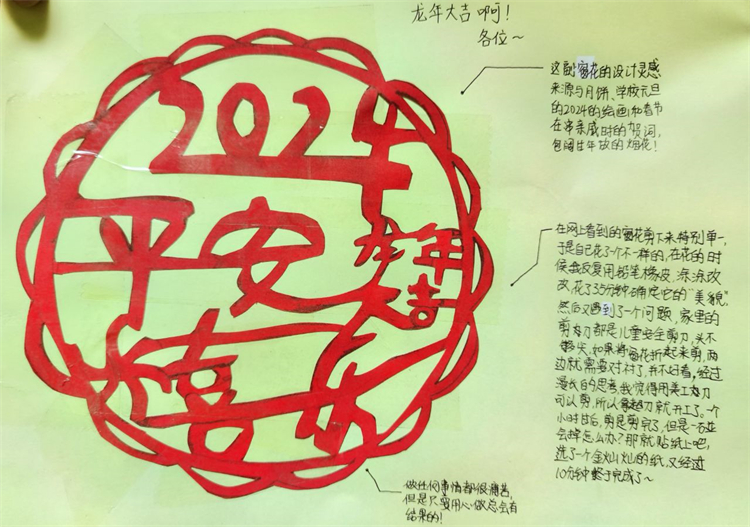 龙年大吉啊!
各位~
2024
平安
龙年
大吉
喜乐
这副窗花的设计灵感
来源与月饼、学校元旦
的2024的绘画和春节
在串亲戚时的贺词,
包阔往年放的烟花!
在网上看到的窗花剪下来特别单一,
于是自己花了一个不一样的,在花的时
候我反复用铅笔橡皮涂涂改
改,花了35分钟确定它的“美貌”
然后又遇到了一个问题,家里的
剪刀都是儿童安全剪刀,头不
够尖,如果将窗花折起来剪,两
边就需要对衬了,并不好看,经过
漫长的思考,我觉得用美工刀
可以剪,所以拿起刀就开工了。一个
小时过后,剪是剪完了,但是一拉
会掉怎么办?那就贴纸上吧,
选了一个金灿灿的纸,又经过
10分钟终于完成了~
做任何事情都很痛苦,
但是只要用心做总会有
结果的!